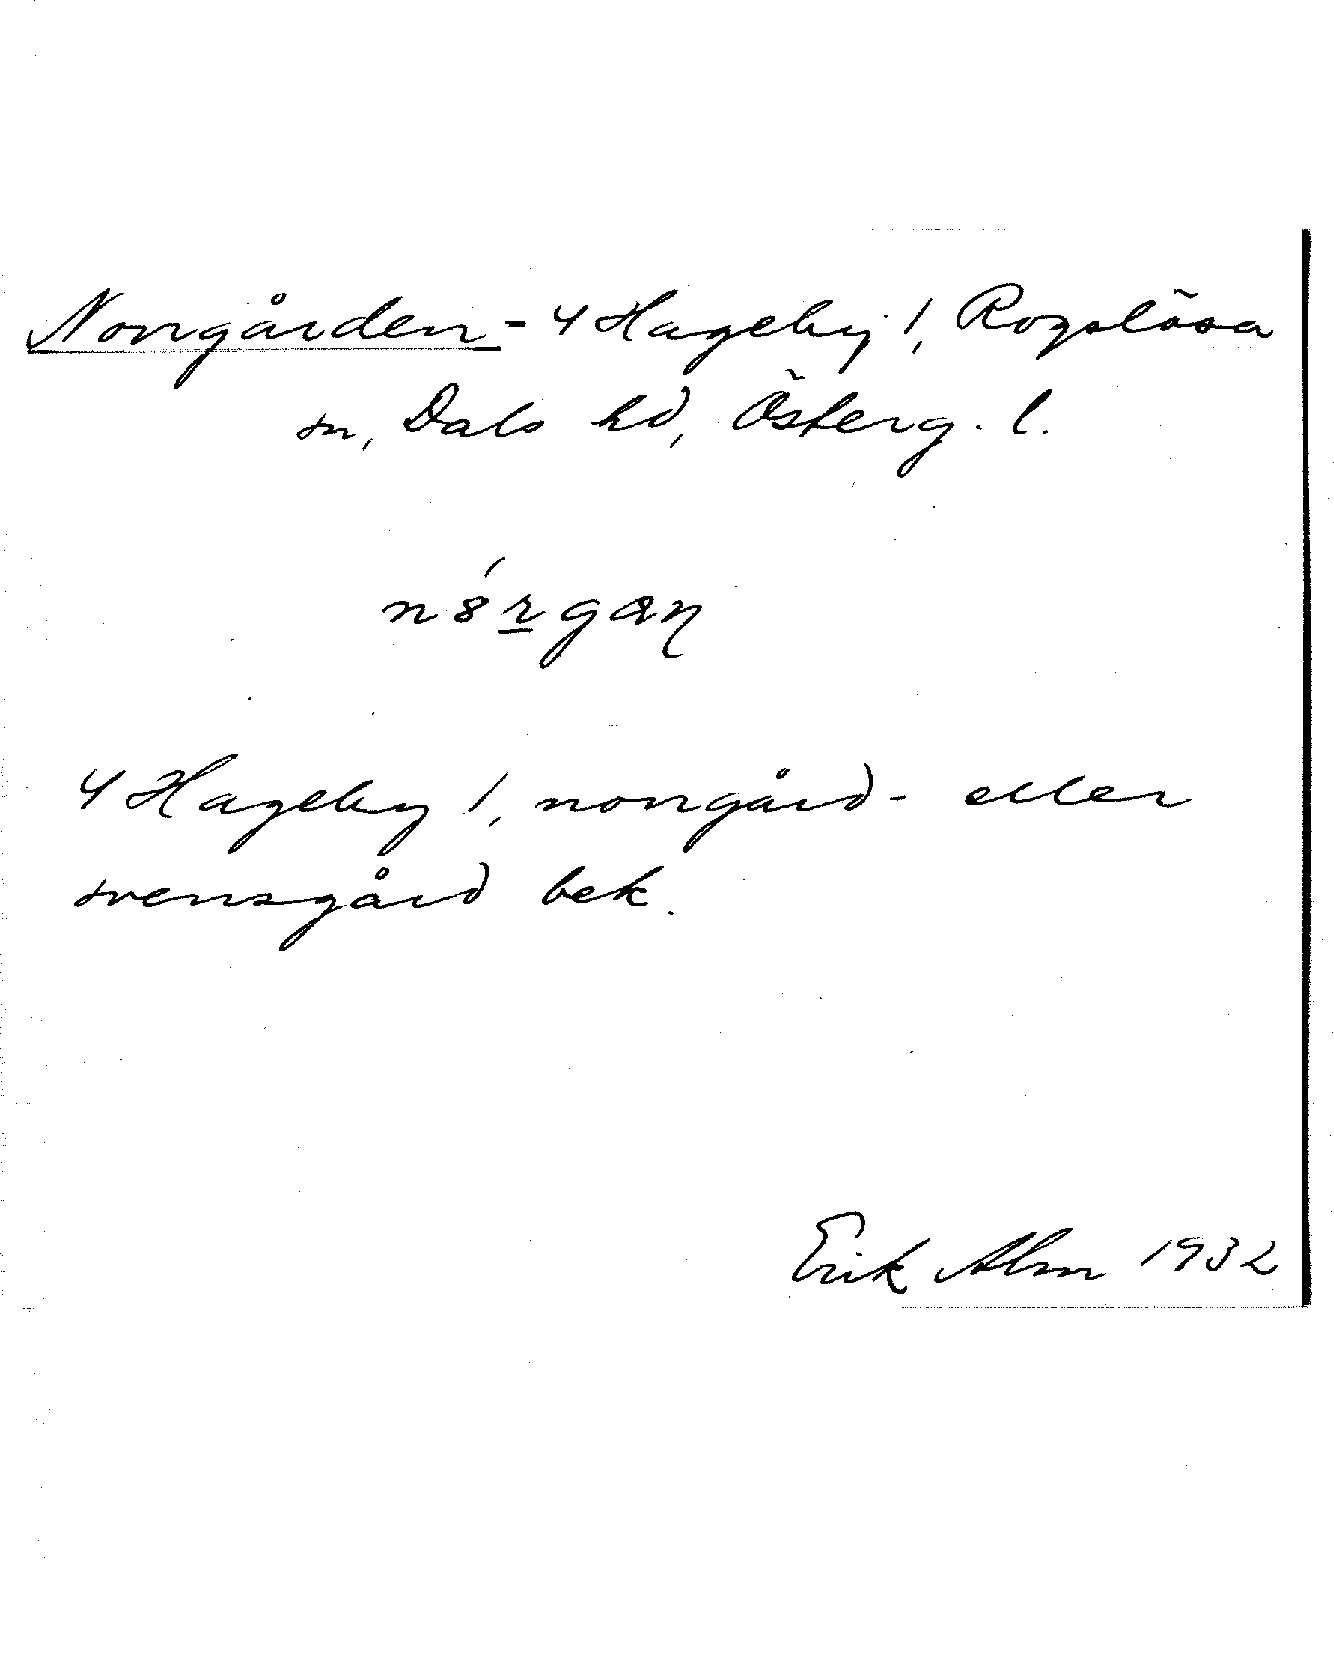 Norrgården - 4 Hageby 1, Rogslösa
sn, Dals hd, Österg. l.
4 Hageby 1, norrgård- eller
svensgård bek.
Erik Alm 1932